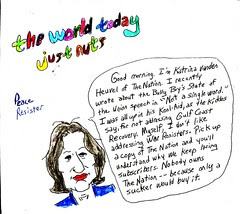 the world today
just nuts
Peace
Resister
Good morning. I'm Katrina vanden
Heuvel of The Nation. I recently
wrote about the Bully Boy's State of
the Union speech in "Not a single word."
I was all up in his Kool-Aid, as the kiddies
say, for not addressing Gulf Coast
Recovery. Myself, I don't like
addressing War Resisters. Pick up
a copy of The Nation and you'll
understand why we keep losing
subscribers. Nobody owns
The Nation -- because only a
sucker would buy it.